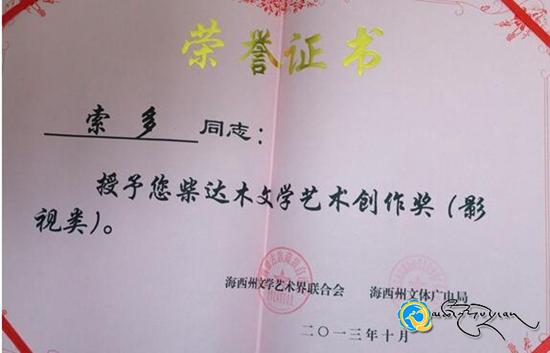 荣誉证书
索多 同志：
授予您柴达木文学艺术创作奖（影
视类）。
海西州文学艺术界联合会 海西州文体广电局
二〇一三年十月